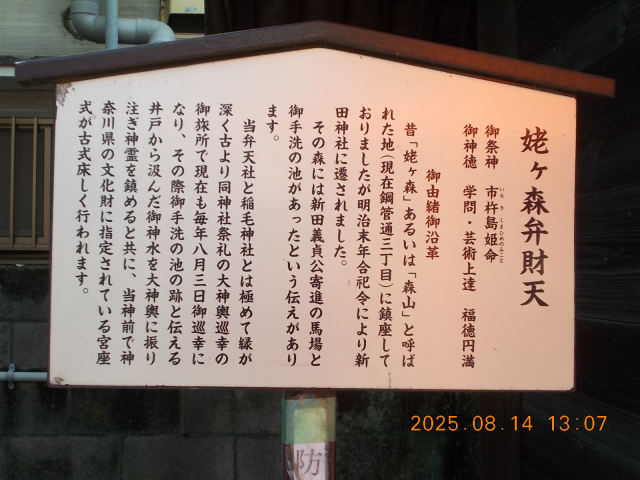 姥ヶ森弁財天
御祭神　市杵島姫命
いちきしまひめのみこと
御神徳　学問・芸術上達　福徳円満
御由緒御沿革
昔「姥ヶ森」あるいは「森山」と呼ば
れた地(現在鋼管通三丁目)に鎮座して
おりましたが明治末年合祀令により新
田神社に遷されました。
その森には新田義貞公寄進の馬場と
御手洗の池があったという伝えがあり
ます。
当弁天社と稲毛神社とは極めて縁が
深く古より同神社祭礼の大神輿巡幸の
御旅所で現在も毎年八月三日御巡幸に
なり、その際御手洗の池の跡と伝える
井戸から汲んだ御神水を大神輿に振り
注ぎ神霊を鎮めると共に、当神前で神
奈川県の文化財に指定されている宮座
式が古式床しく行われます。
防
2025.08.14 13:07